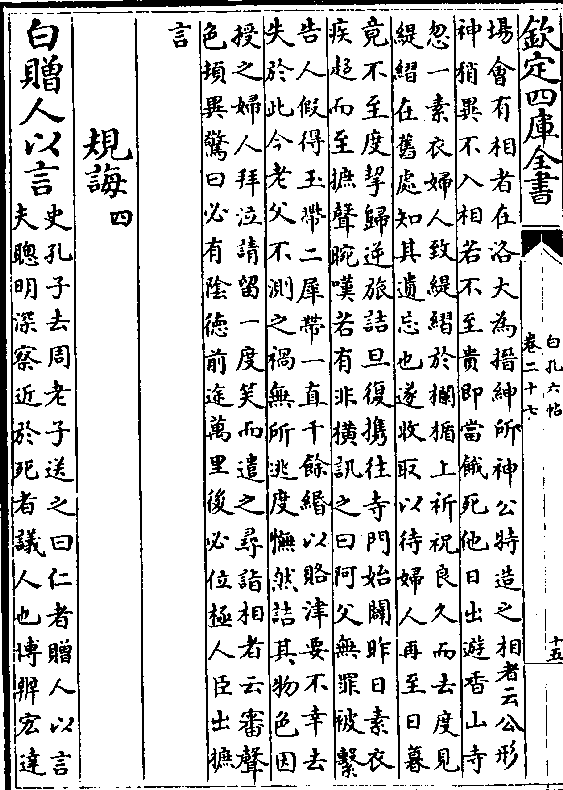 欽定四庫全書
白孔六帖
卷二十七
十五
場會有相者在洛大為搢紳所神公特造之相者云公形
神稍異不入相若不至貴即當餓死他日出遊香山寺
忽一素衣婦人致緹褶於攔楯上祈祝良久而去度見
緹褶在舊處知其遺忘也遂收取以待婦人再至日暮
竟不至度挈歸逆旅詰旦復攜往寺門始闢昨日素衣
疾趨而至摭聲惋嘆若有非橫訊之曰阿父無罪被繫
告人假得玉帶二犀帶一直千餘緡以賂津要不幸去
失於此今老父不測之禍無所逃度憮然詰其物色因
授之婦人拜泣請留一度笑而遣之尋詣相者云審聲
色頓異驚曰必有陰德前途萬里後必位極人臣出摭
言
規誨四
白贈人以言史孔子去周老子送之曰仁者贈人以言
夫聰明深察近於死者議人也博辯宏達